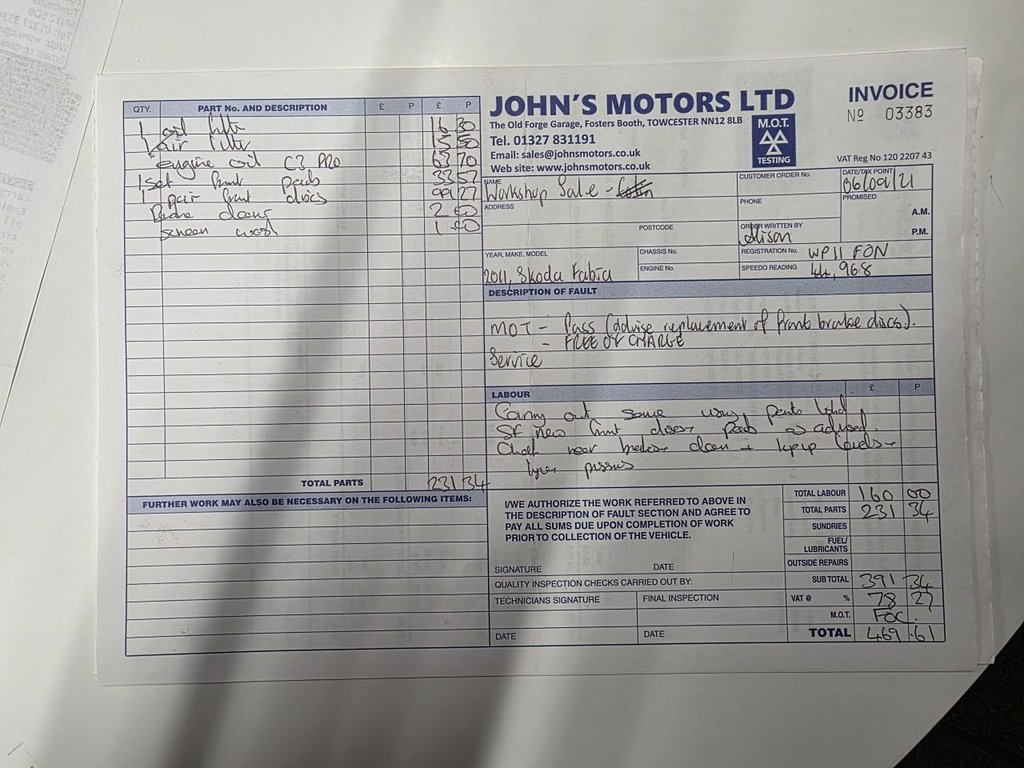 QTY. PART No. AND DESCRIPTION £ P £ P
1 oil filter 16 30
1 air filter 15 50
engine oil C3 PRO 63 70
1 Set front pads 33 57
1 pair front discs 99 27
Brake cleaner 2 00
Screen wash 1 00
TOTAL PARTS 231 34
FURTHER WORK MAY ALSO BE NECESSARY ON THE FOLLOWING ITEMS:
JOHN'S MOTORS LTD
The Old Forge Garage, Fosters Booth, TOWCESTER NN12 8LB
Tel. 01327 831191
Email: sales@johnsmotors.co.uk
Web site: www.johnsmotors.co.uk
M.O.T.
TESTING
INVOICE
No 03383
VAT Reg No 120 2207 43
NAME Workshop Sale -
CUSTOMER ORDER No.
DATE/TAX POINT 06/09/21
ADDRESS
PHONE
PROMISED
A.M.
P.M.
POSTCODE
ORDER WRITTEN BY Alison
YEAR, MAKE, MODEL 2011, Skoda Fabia
CHASSIS No.
REGISTRATION No. WP11 FON
ENGINE No.
SPEEDO READING 44,968
DESCRIPTION OF FAULT
MOT - Pass (advise replacement of front brake discs).
- FREE OF CHARGE
Service
LABOUR £ P
Carry out using parts
new front discs + pads as advised.
Check rear brakes clean + top up levels +
tyre
I/WE AUTHORIZE THE WORK REFERRED TO ABOVE IN
THE DESCRIPTION OF FAULT SECTION AND AGREE TO
PAY ALL SUMS DUE UPON COMPLETION OF WORK
PRIOR TO COLLECTION OF THE VEHICLE.
SIGNATURE DATE
QUALITY INSPECTION CHECKS CARRIED OUT BY:
TECHNICIANS SIGNATURE FINAL INSPECTION
DATE DATE
TOTAL LABOUR 160 00
TOTAL PARTS 231 34
SUNDRIES
FUEL/
LUBRICANTS
OUTSIDE REPAIRS
SUB TOTAL 391 34
VAT @ % 78 27
M.O.T. FOC.
TOTAL 469 .61